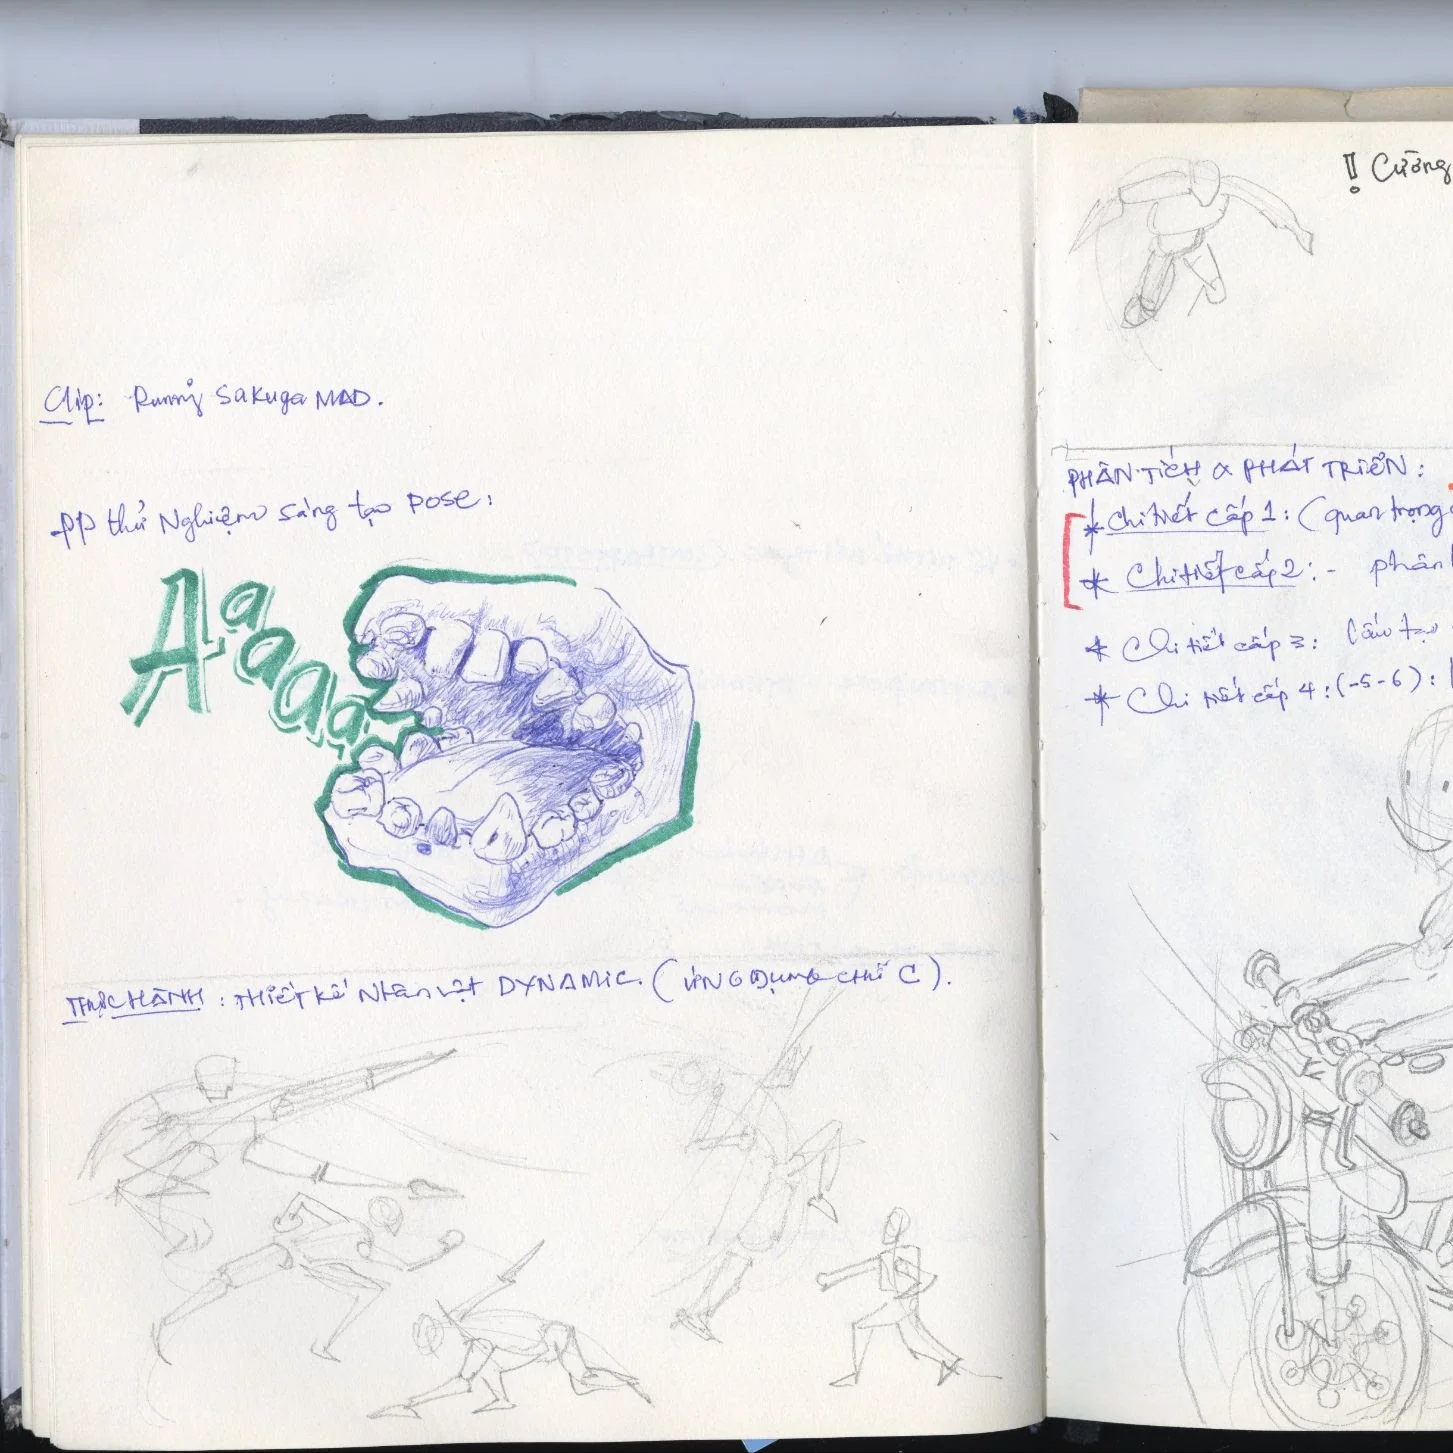 Clip: Runnỷ Sakuga MAD.
PP thử Nghiệm sáng tạo pose:
Aaaaa
THỰC HÀNH: THIẾT KẾ Nhân vật DYNAMIC. (ỨNG DỤNG CHỮ C).
! Cường
PHÂN TÍCH & PHÁT TRIỂN:
* Chi tiết cấp 1: (quan trọng
* Chi tiết cấp 2: - phân
* Chi tiết cấp 3: Cấu tạo
* Chi tiết cấp 4: (-5-6):